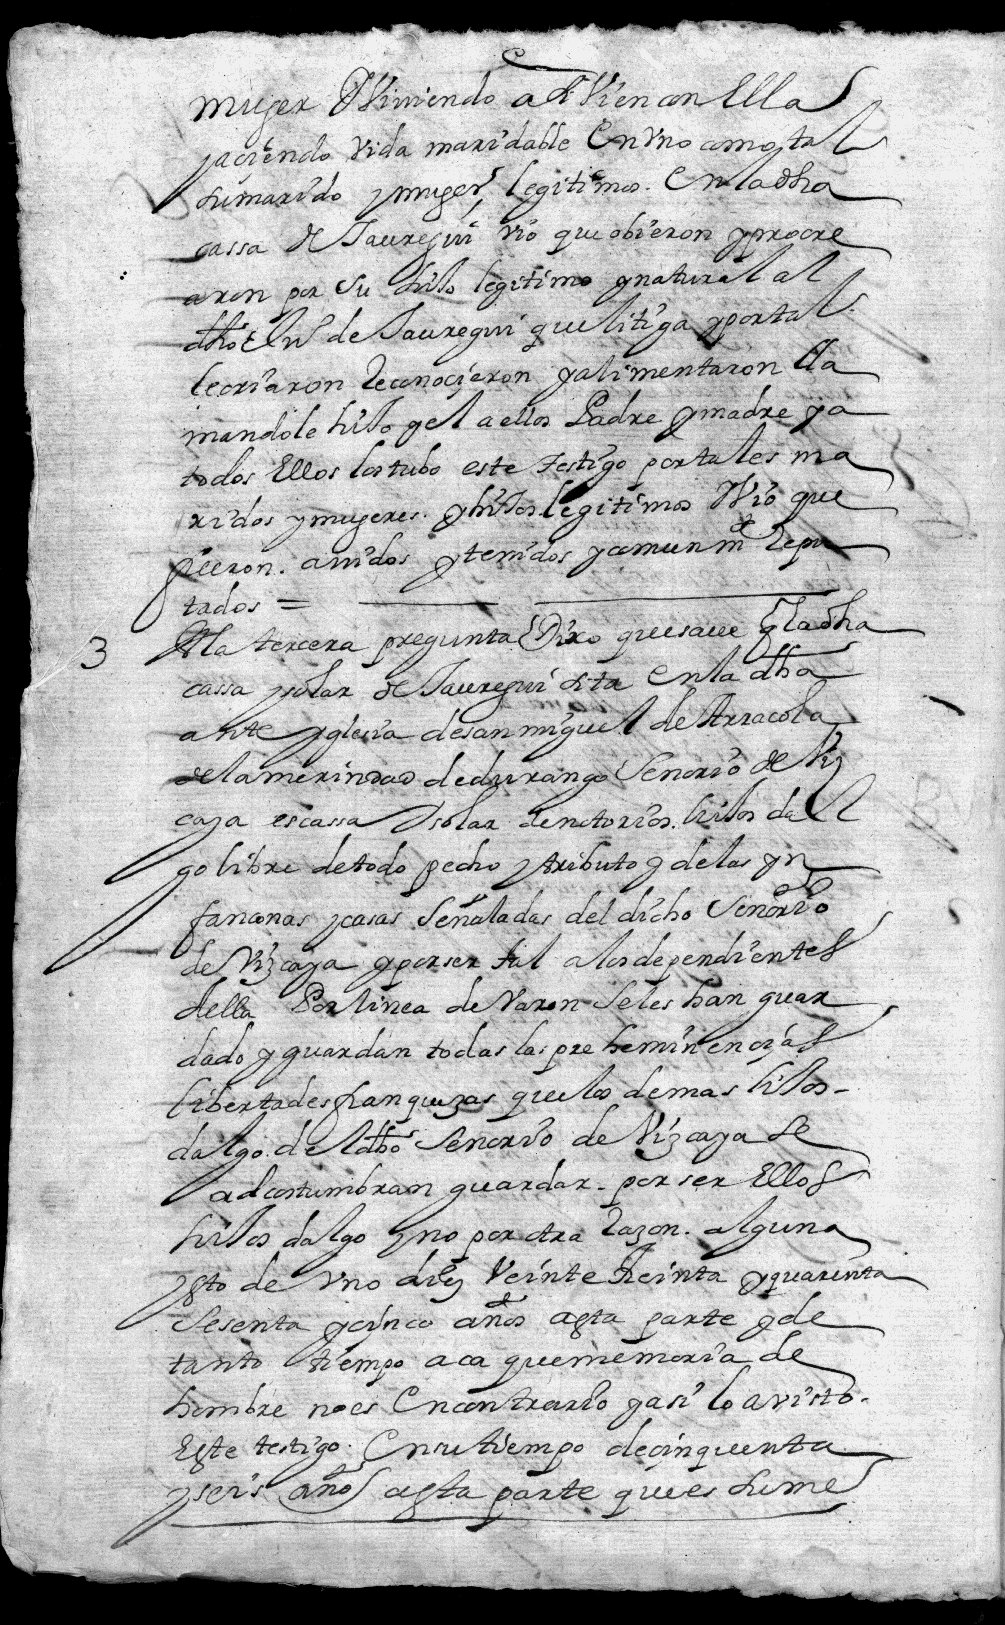 muger Viviendo a Vien con Ella
haciendo vida maridable En vno como tal
su marido y muger legitimos. En la dha
cassa de Jauregui vio que obieron y procre
aron por su hijo legitimo y natural al
dho de Jauregui que litiga y por tal
le criaron Reconocieron y alimentaron lla
mandole hijo y el a ellos Padre y madre y a
todos Ellos los tubo este testigo por tales ma
ridos y mugeres. y hijos legitimos Vio que
fueron. auidos y tenidos y comunmte Repu
tados =
3 A la tercera pregunta Dixo que saue q la dha
cassa y solar de Jauregui sita En la dha
ante yglesia de san miguel de Arracola
de la merindad de durango Senorio de Viz
caya es cassa y solar de notorios hijos dal
go libre de todo pecho y tributo y de las yn
fanconas y casas Señaladas del dicho Senorio
de Vizcaya y por ser tal a los dependientes
della Por linea de Varon se les han guar
dado y guardan todas las preheminencias
libertades franquezas que los demas hijos-
dalgo del dho Senorio de Vizcaya se
acostumbran guardar. por ser Ellos
hijos dalgo y no por otra Razon. alguna
y esto de vno diez Veinte treinta y quarenta
Sesenta y cinco años a esta parte y de
tanto tiempo aca que memoria de
hombre no es En contrario y asi lo a visto.
Este testigo. En su tiempo de cinquenta
y seis años a esta parte que es su me